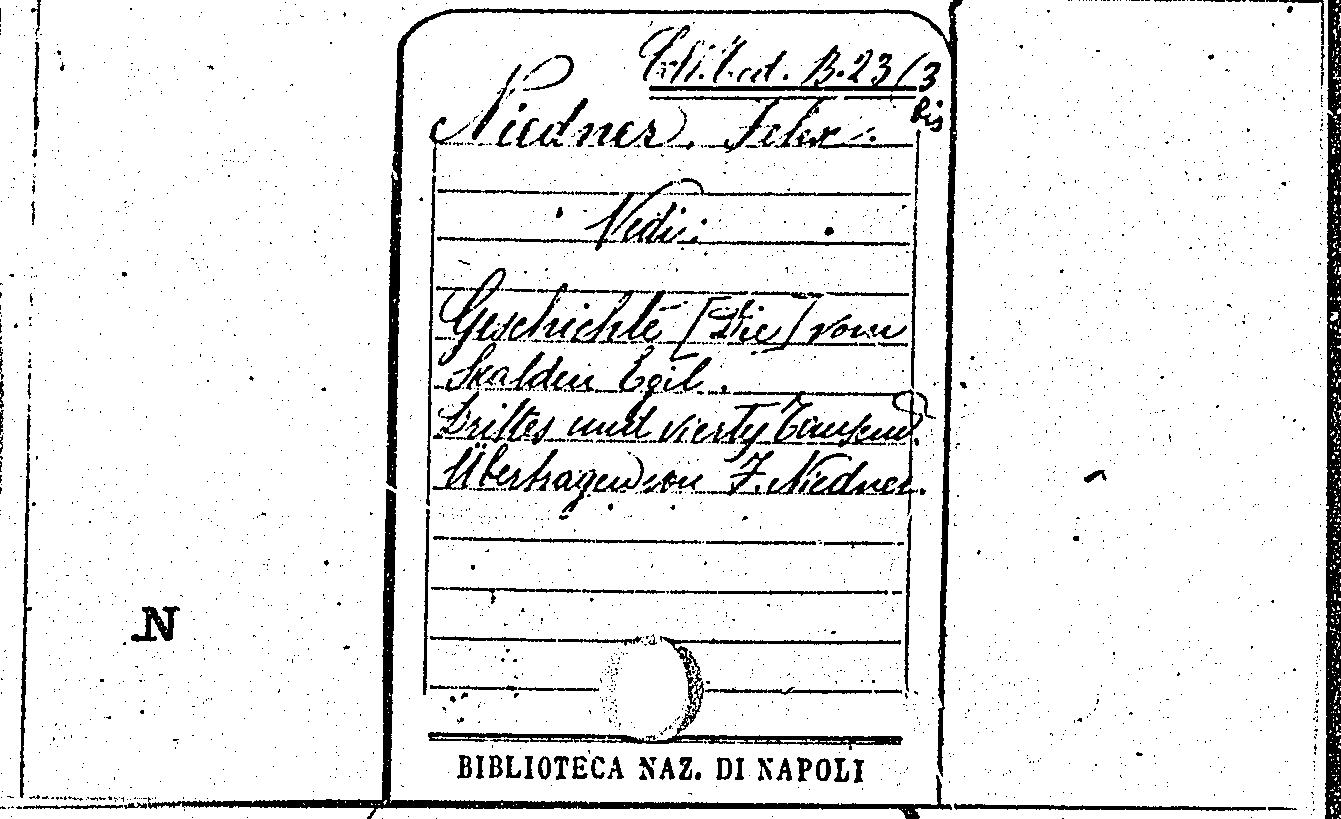 Coll. Cat. B. 23 (3
bis
Niedner, Felix.
Vedi:
Geschichte [Die] vom
Skalden Egil.
Drittes und viertes Tausend.
Übertragen von F. Niedner.
N
BIBLIOTECA NAZ. DI NAPOLI